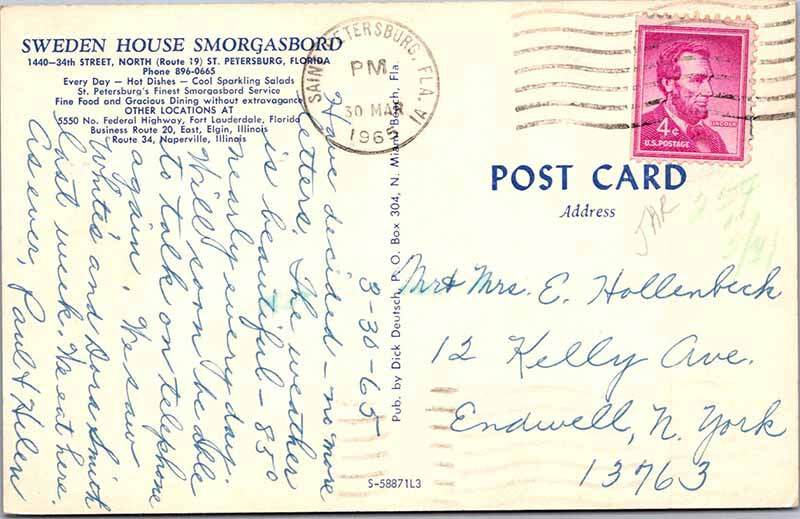 SWEDEN HOUSE SMORGASBORD
1440—34th STREET, NORTH (Route 19) ST. PETERSBURG, FLORIDA
Phone 896-0665
Every Day — Hot Dishes — Cool Sparkling Salads
St. Petersburg's Finest Smorgasbord Service
Fine Food and Gracious Dining without extravagance
OTHER LOCATIONS AT
5550 No. Federal Highway, Fort Lauderdale, Florida
Business Route 20, East, Elgin, Illinois
Route 34, Naperville, Illinois
3-30-65
Have decided - no more
letters. The weather
is beautiful - 85°
nearly every day.
Will soon be able
to talk on telephone
again. We saw
White's and Dora Smith
last week. We eat here.
As ever, Paul & Helen
Pub. by Dick Deutsch, P. O. Box 304, N. Miami Beach, Fla.
S-58871L3
SAINT PETERSBURG, FLA.
PM
30 MAR
1965
LINCOLN
4¢
U.S. POSTAGE
POST CARD
Address
Mr & Mrs. E. Hollenbeck
12 Kelly Ave.
Endwell, N. York
13763